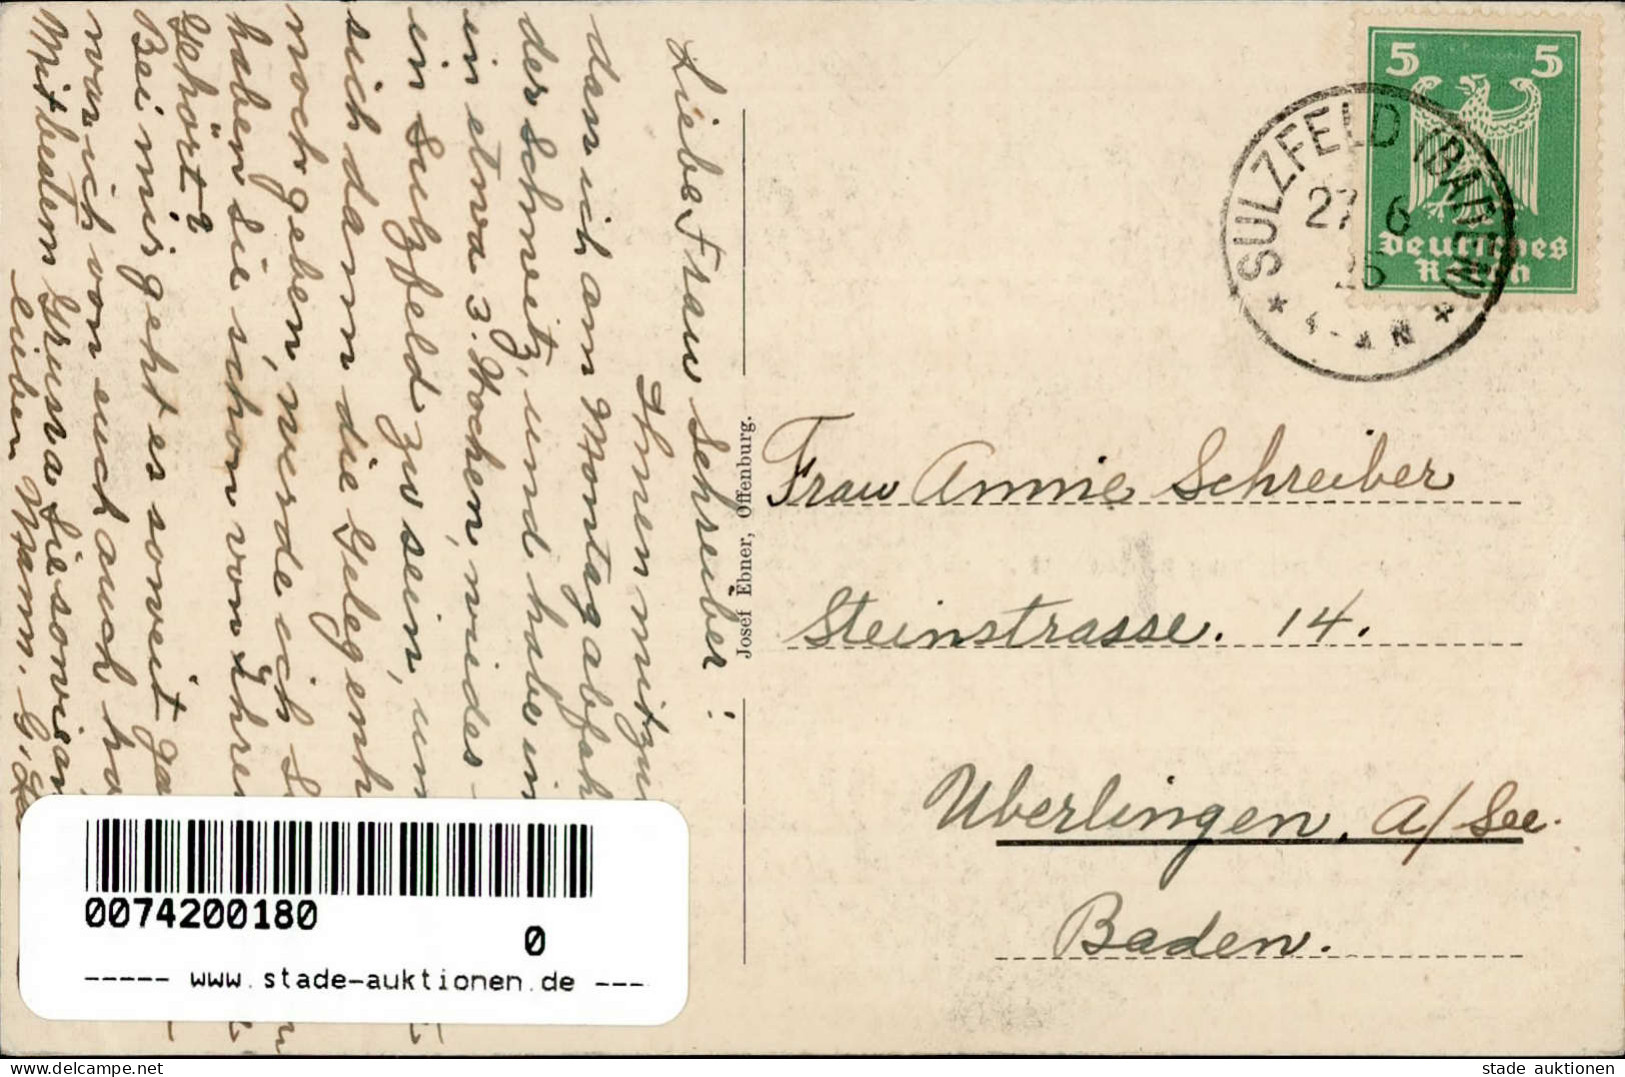 Liebe Frau Schreiber:
Ihnen mitzu
dass ich am Montag abfah
der Schweitz, und habe in
in etwa 3. Wochen, wieder
in Sulzfeld zu sein, um
sich dann die Gelegenh
noch geben, werde ich
haben Sie schon von Ihren
Gehört?
Bei mir geht es soweit ga
war ich von euch auch
Mit bestem Gruss a. Sie sowie an
lieben Mann. G.
5 5
Deutsches
Reich
SULZFELD (BADEN)
27 6
* *
Josef Ebner, Offenburg.
Frau Annie Schreiber
Steinstrasse. 14.
Uberlingen. a/See.
Baden.
0074200180
0
----- www.stade-auktionen.de ---
www.delcampe.net
stade auktionen